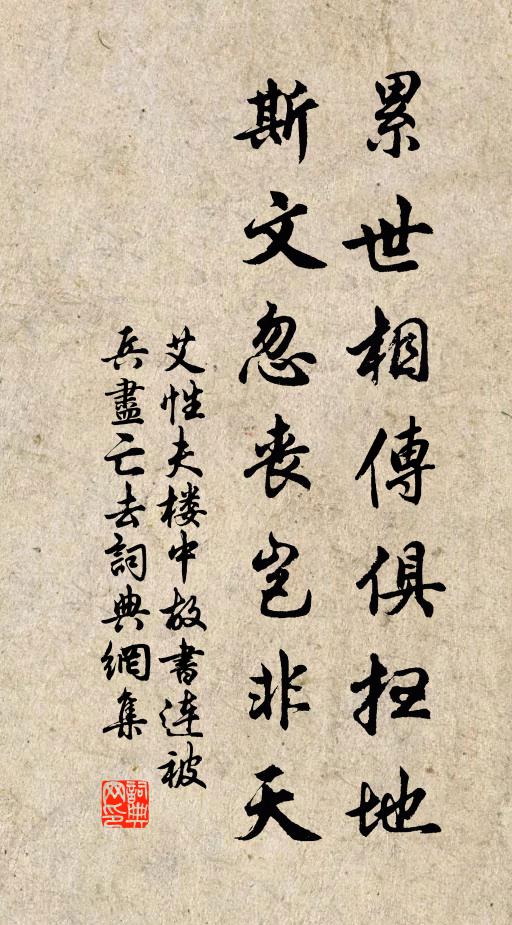 累世相傳俱扫地
斯文忽丧岂非天
艾性夫楼中故書连被
兵盡亡去詞典網集
詞典
网印